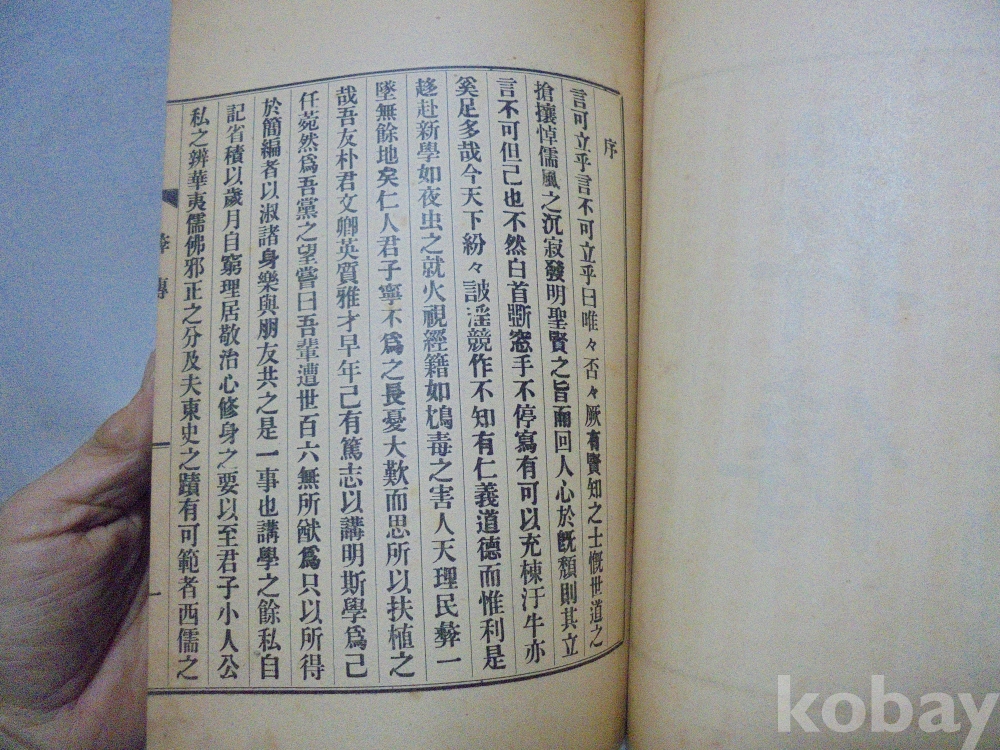 序
言可立乎言不可立乎曰唯々否々厥有賢知之士慨世道之
搶攘悼儒風之沉寂發明聖賢之旨爾回人心於旣頹則其立
言不可但已也不然白首斷窓手不停寫有可以充棟汗牛亦
奚足多哉今天下紛々詖淫競作不知有仁義道德而惟利是
趍赴新學如夜虫之就火視經籍如鴆毒之害人天理民彝一
墜無餘地矣仁人君子寧不爲之長憂大歎而思所以扶植之
哉吾友朴君文卿英質雅才早年已有篤志以講明斯學爲己
任菀然爲吾黨之望嘗曰吾輩遭世百六無所猷爲只以所得
於簡編者以淑諸身樂與朋友共之是一事也講學之餘私自
記省積以歲月自窮理居敬治心修身之要以至君子小人公
私之辨華夷儒佛邪正之分及夫東史之蹟有可範者西儒之
傳
一
kobay